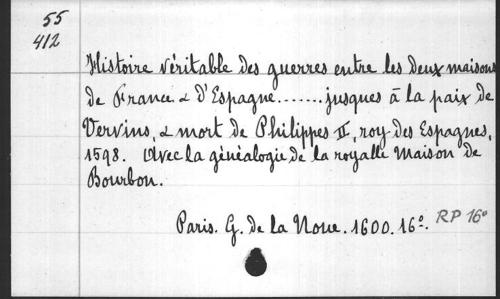 55
412
Histoire véritable des guerres entre les deux maisons
de France & d'Espagne.......jusques à la paix de
Vervins, & mort de Philippes II, roy des Espagnes,
1598. Avec la généalogie de la royalle Maison de
Bourbon.
Paris. G. de la Noue. 1600. 16º. RP 16º